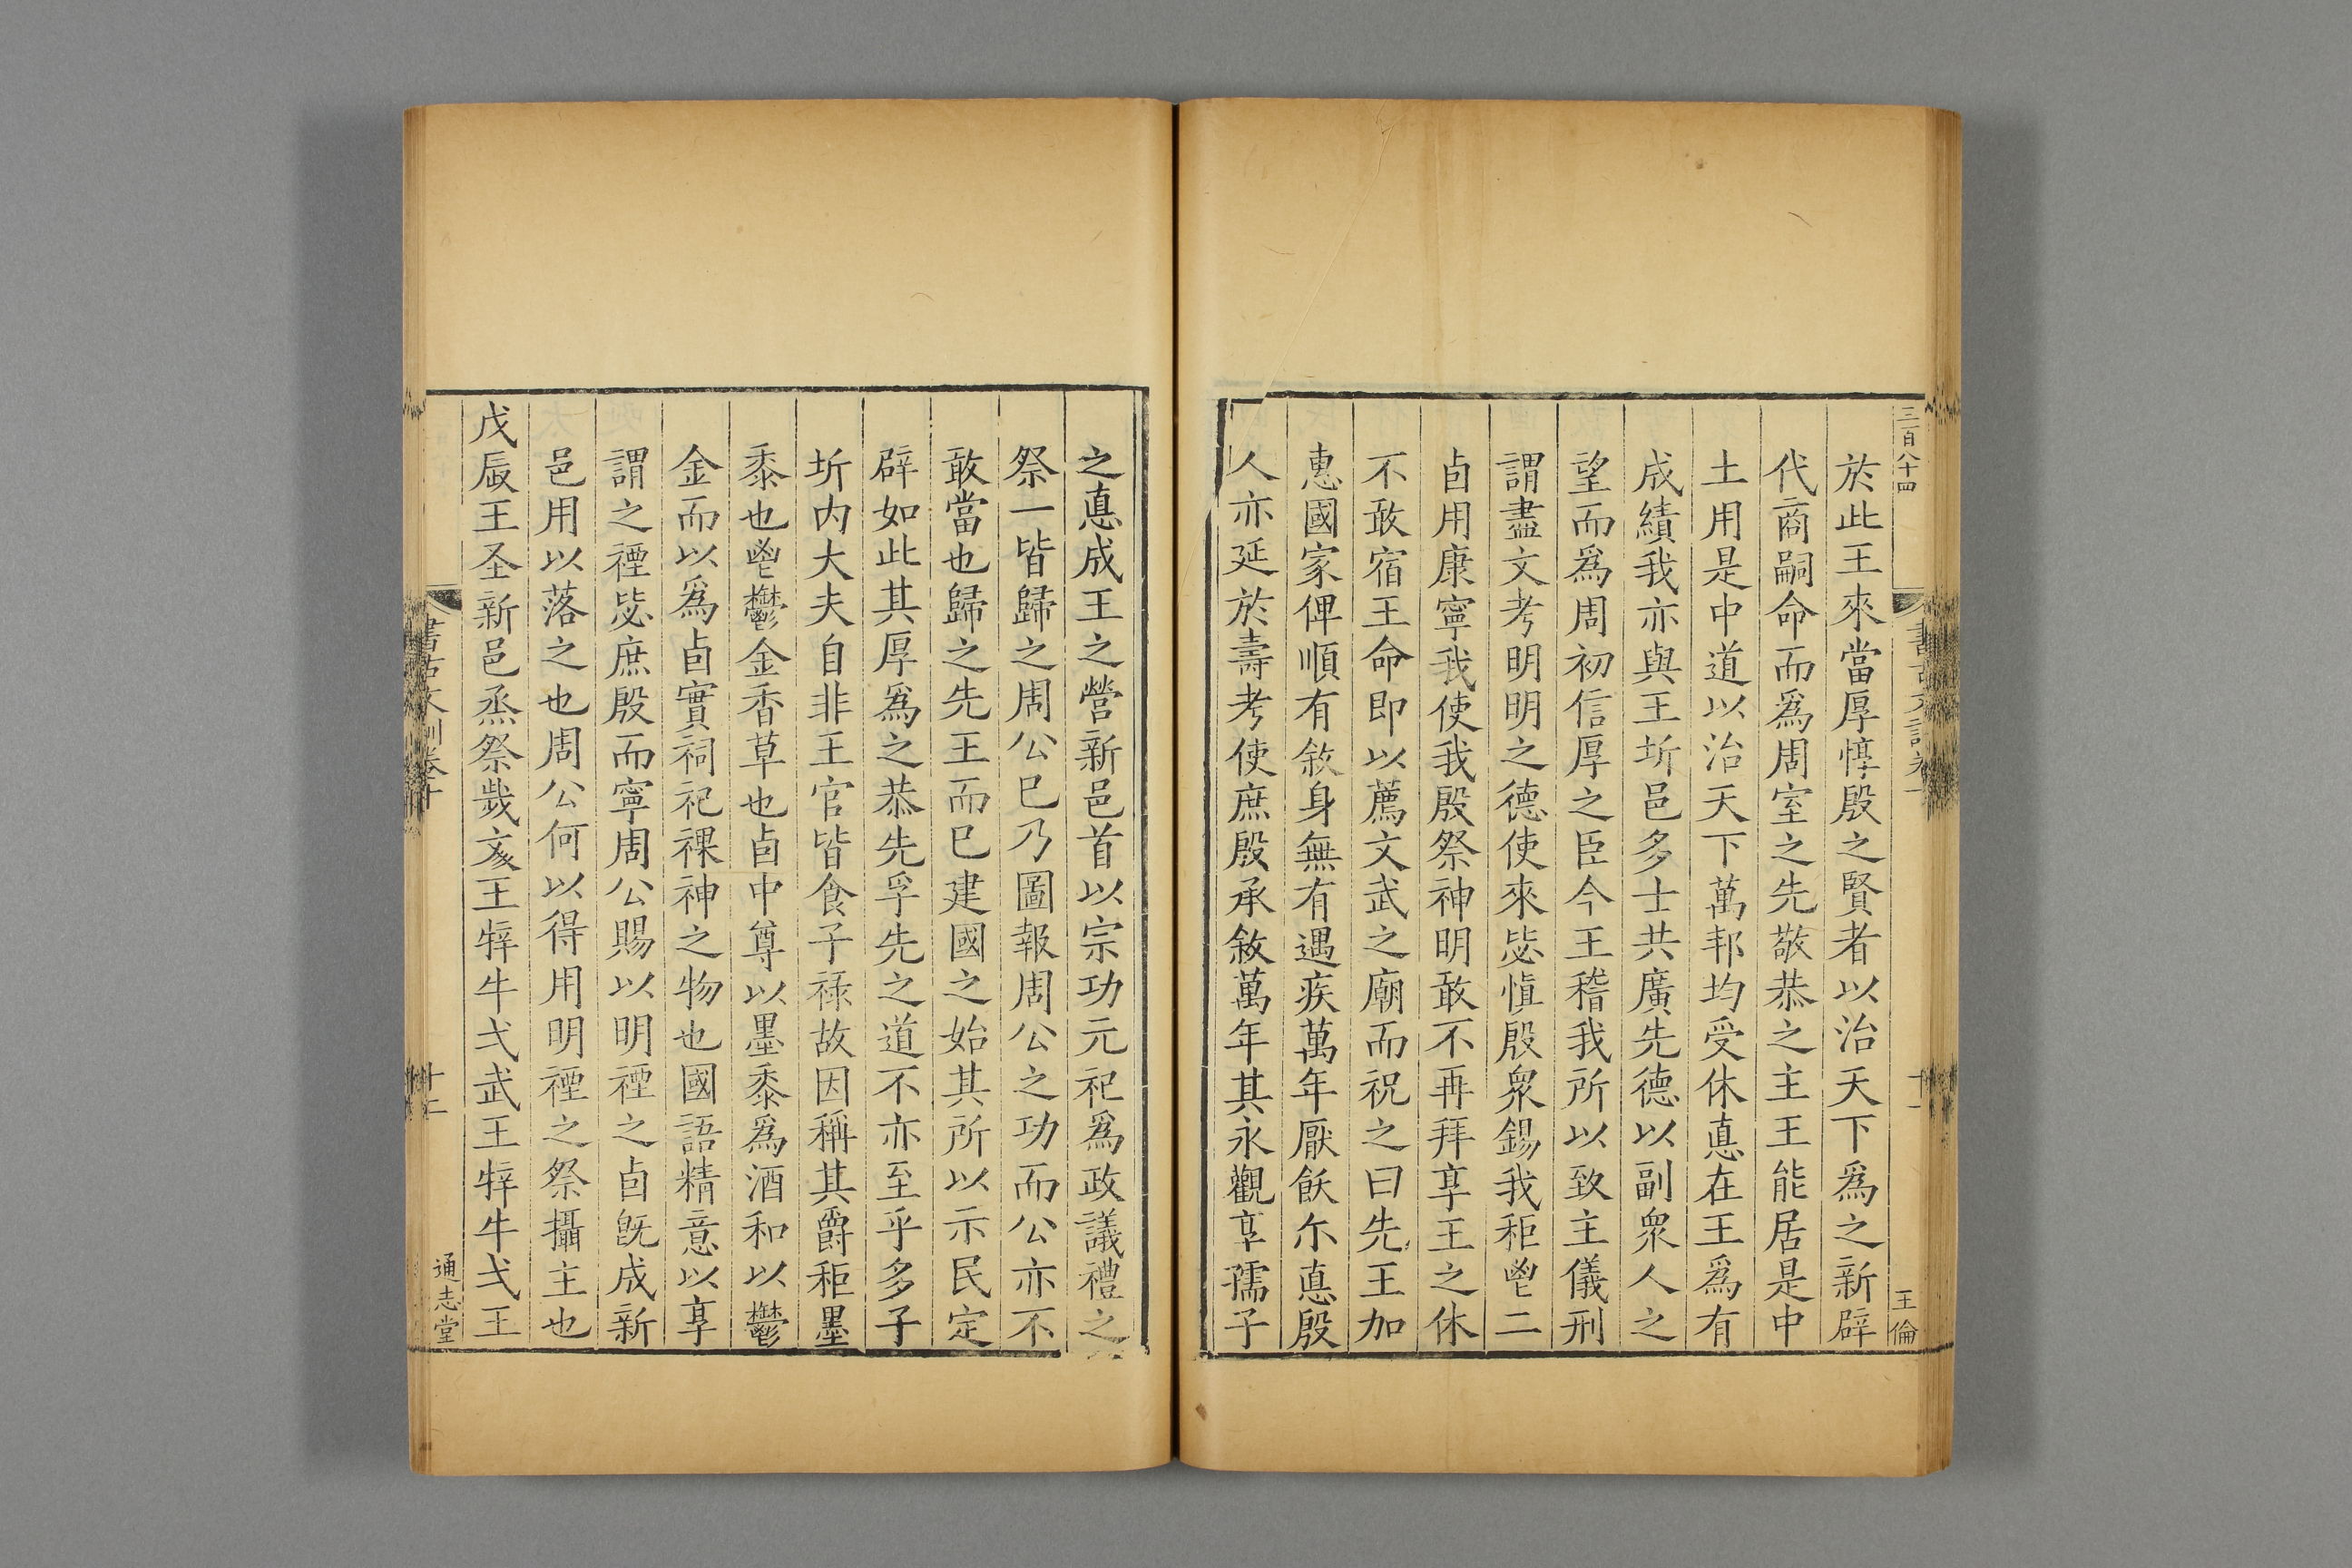 三百八十四
王倫
於此王來當厚惇殷之賢者以治天下爲之新辟
代商嗣命而爲周室之先敬恭之主王能居是中
土用是中道以治天下萬邦均受休悳在王爲有
成績我亦與王圻邑多士共廣先德以副衆人之
望而爲周初信厚之臣今王稽我所以致主儀刑
謂盡文考明明之德使來毖愼殷衆錫我秬鬯二
卣用康寧我使我殷祭神明敢不再拜享王之休
不敢宿王命即以薦文武之廟而祝之曰先王加
惠國家俾順有敘身無有遇疾萬年厭飫尒悳殷
人亦延於壽考使庶殷承敘萬年其永觀享孺子
之悳成王之營新邑首以宗功元祀爲政議禮之
祭一皆歸之周公已乃圖報周公之功而公亦不
敢當也歸之先王而已建國之始其所以示民定
辟如此其厚爲之恭先孚先之道不亦至乎多子
圻内大夫自非王官皆食子祿故因稱其爵秬墨
黍也鬯鬱金香草也卣中尊以墨黍爲酒和以鬱
金而以爲卣實祠祀祼神之物也國語精意以享
謂之禋毖庶殷而寧周公賜以明禋之卣旣成新
邑用以落之也周公何以得用明禋之祭攝主也
戊辰王圣新邑烝祭歲文王牸牛弌武王牸牛弌王
書古文訓卷十
十二
通志堂